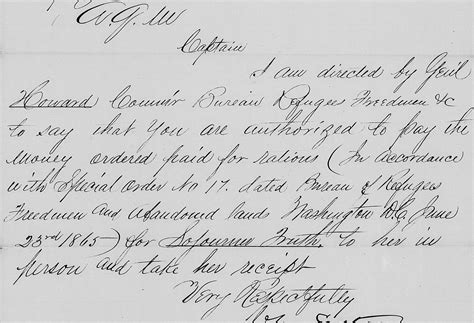 A.G.M
Captain
I am directed by Genl
Howard Commr Bureau Refugees Freedmen &c
to say that You are authorized to pay the
Money ordered paid for rations (In accordance
with Special Order No 17. dated Bureau of Refugees
Freedmen And Abandoned lands Washington D.C. June
23rd 1865) for Sojourner Truth, to her in
person and take her receipt
Very Respectfully